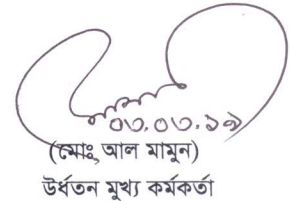 ০৩.০৩.১৯
(মোঃ আল মামুন)
উর্ধতন মুখ্য কর্মকর্তা